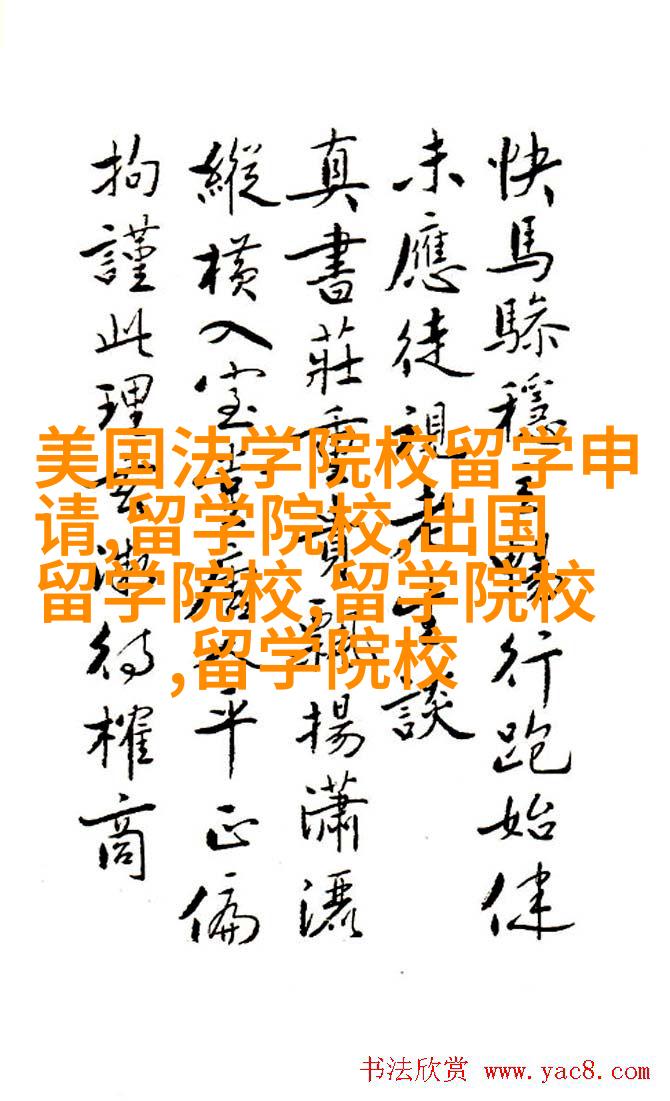 快馬驂穩
行跑始健
未應徒視老生談
真書莊重貴飄揚瀟灑
縱橫入室
平正偏
拘謹此理
待榷商
美国法学院校留学申
请,留学院校,出国
留学院校,留学院校
,留学院校
书法欣赏 www.yac8.com